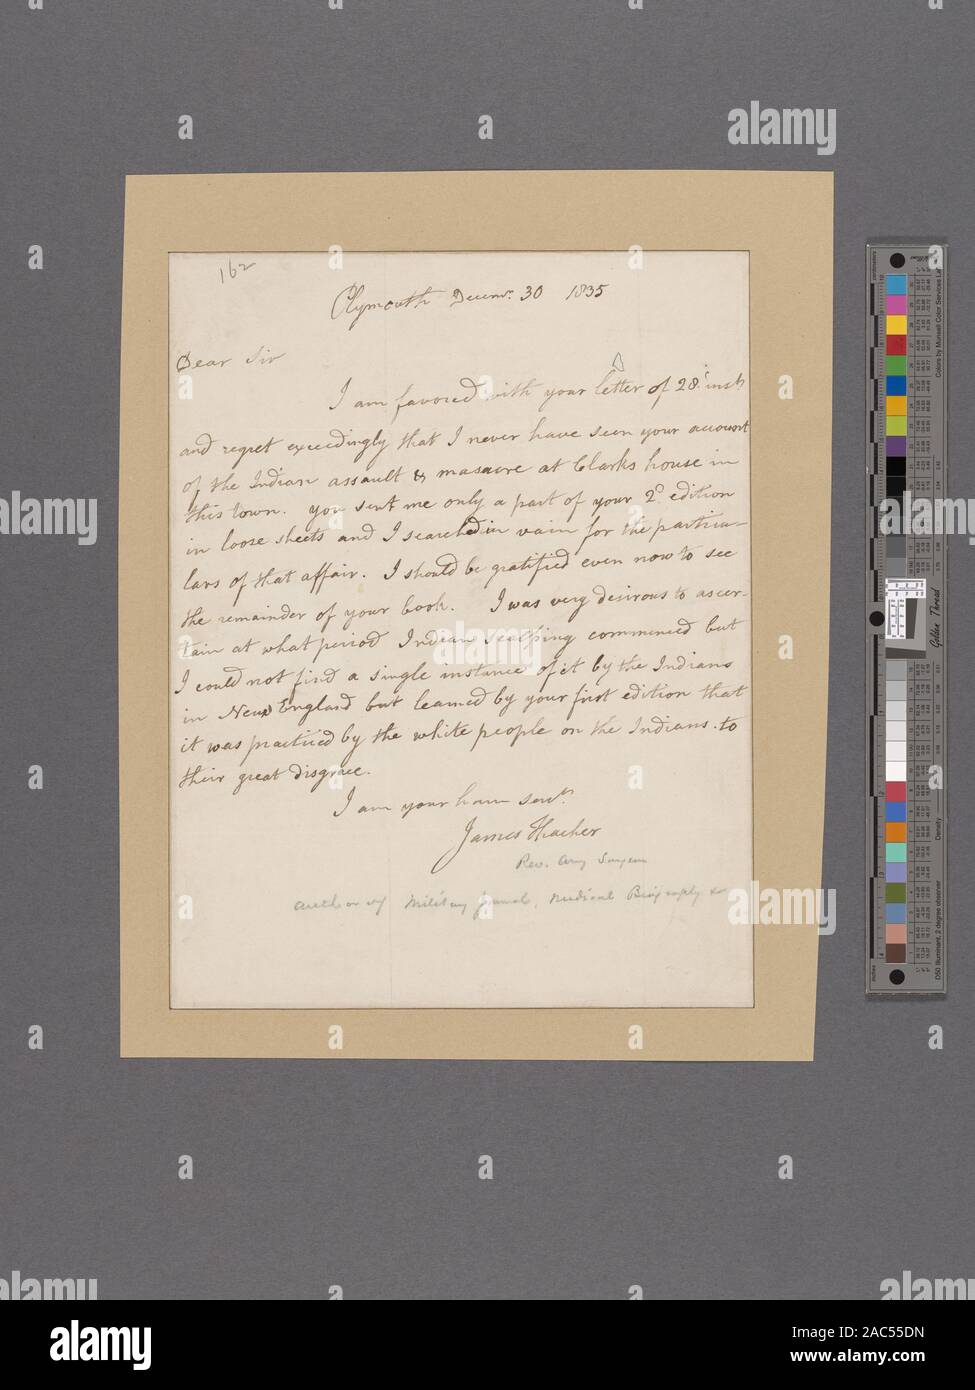 162
Plymouth Decemr. 30 1835
Dear Sir
I am favored with your letter of 28 inst
and regret exceedingly that I never have seen your account
of the Indian assault & masacre at Clarks house in
this town. you sent me only a part of your 2d edition
in loose sheets and I searched in vain for the particu-
lars of that affair. I should be gratified even now to see
the remainder of your book. I was very desirous to ascer-
tain at what period Indian scalping commenced but
I could not find a single instance of it by the Indians
in New England but learned by your first edition that
it was practiced by the white people on the Indians to
their great disgrace.
I am your hum servt.
James Thacher
Rev. Army Surgeon
author of Military Journal, Medical Biography &
alamy
Image ID: 2AC55DN
www.alamy.com